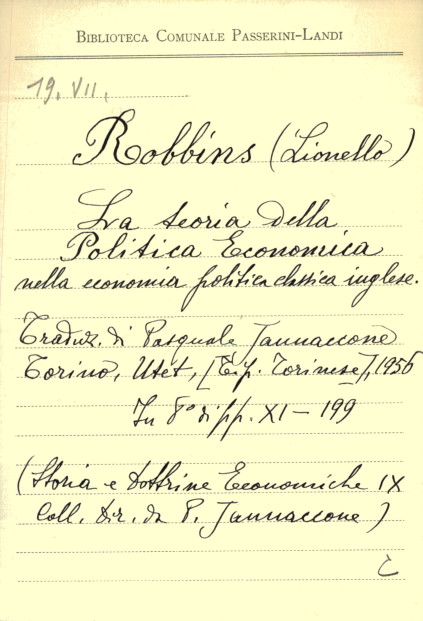 BIBLIOTECA COMUNALE PASSERINI-LANDI
19. VII.
Robbins (Lionello)
La teoria della
Politica Economica
nella economia politica classica inglese.
Traduz. di Pasquale Jannaccone
Torino, Utet, [Tip. Torinese], 1956
In 8° di pp. XI - 199
(Storia e Dottrine Economiche IX
Coll. dir. da P. Jannaccone)